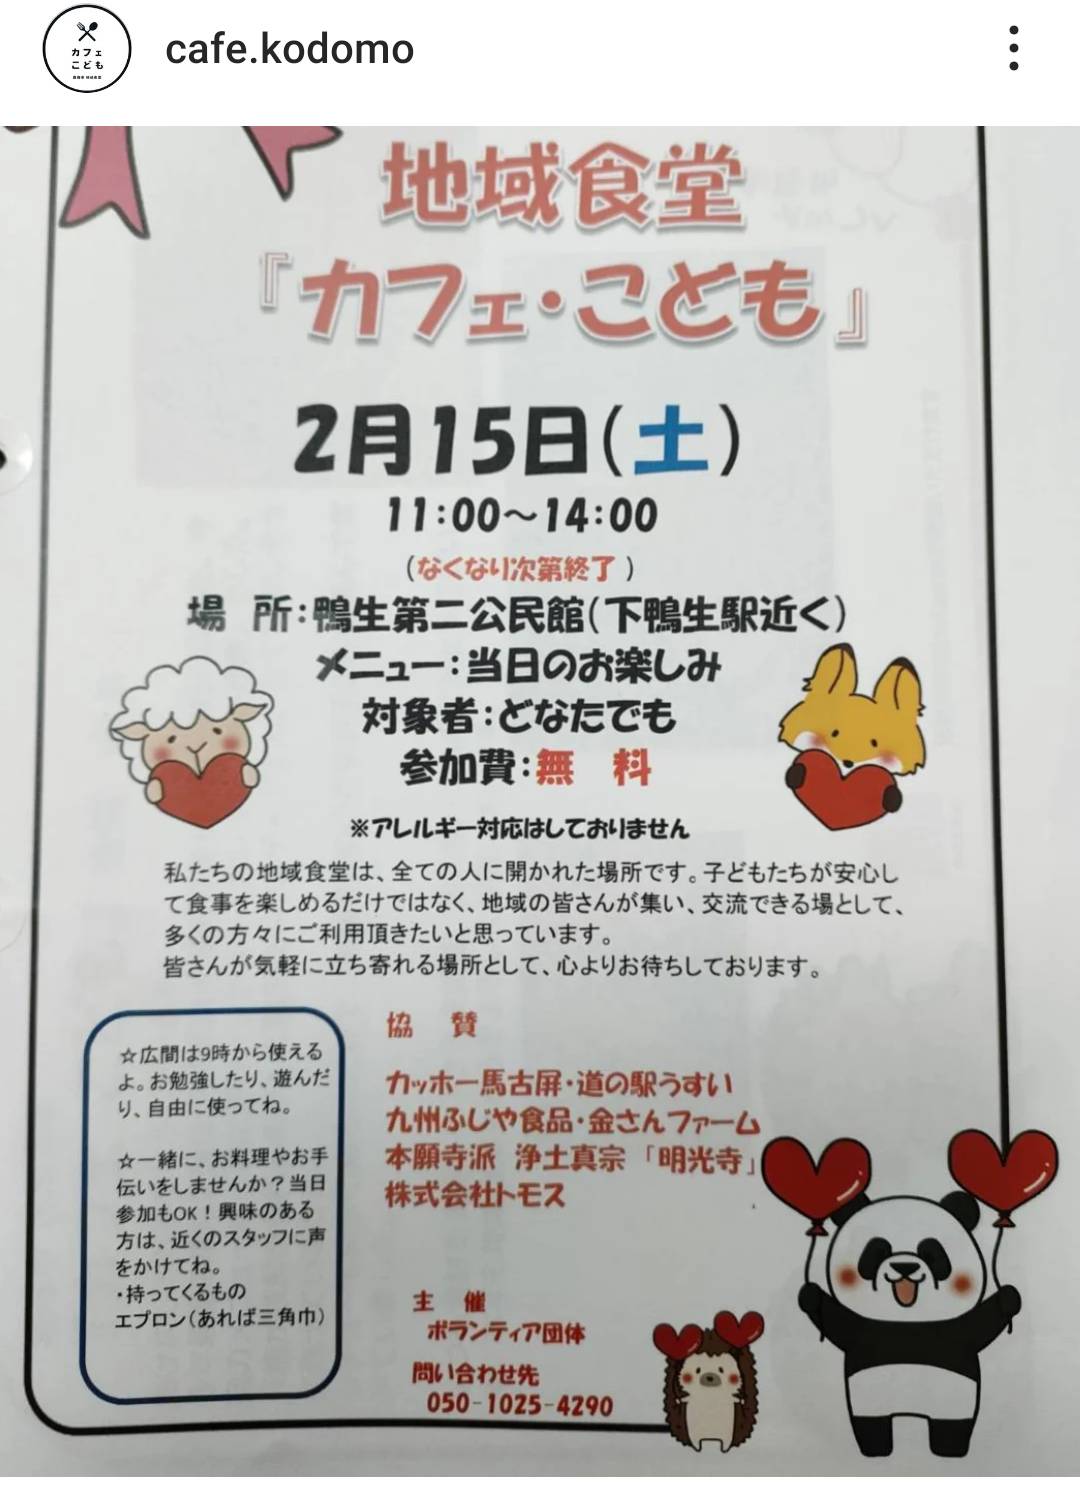 カフェ
こども
cafe.kodomo
地域食堂
『カフェ・こども』
2月15日(土)
11:00～14:00
(なくなり次第終了)
場 所:鴨生第二公民館(下鴨生駅近く)
メニュー:当日のお楽しみ
対象者:どなたでも
参加費:無 料
※アレルギー対応はしておりません
私たちの地域食堂は、全ての人に開かれた場所です。子どもたちが安心し
て食事を楽しめるだけではなく、地域の皆さんが集い、交流できる場として、
多くの方々にご利用頂きたいと思っています。
皆さんが気軽に立ち寄れる場所として、心よりお待ちしております。
☆広間は9時から使える
よ。お勉強したり、遊んだ
り、自由に使ってね。
☆一緒に、お料理やお手
伝いをしませんか？当日
参加もOK！興味のある
方は、近くのスタッフに声
をかけてね。
・持ってくるもの
エプロン(あれば三角巾)
協 賛
カッホー馬古屏・道の駅うすい
九州ふじや食品・金さんファーム
本願寺派 浄土真宗「明光寺」
株式会社トモス
主 催
ボランティア団体
問い合わせ先
050-1025-4290